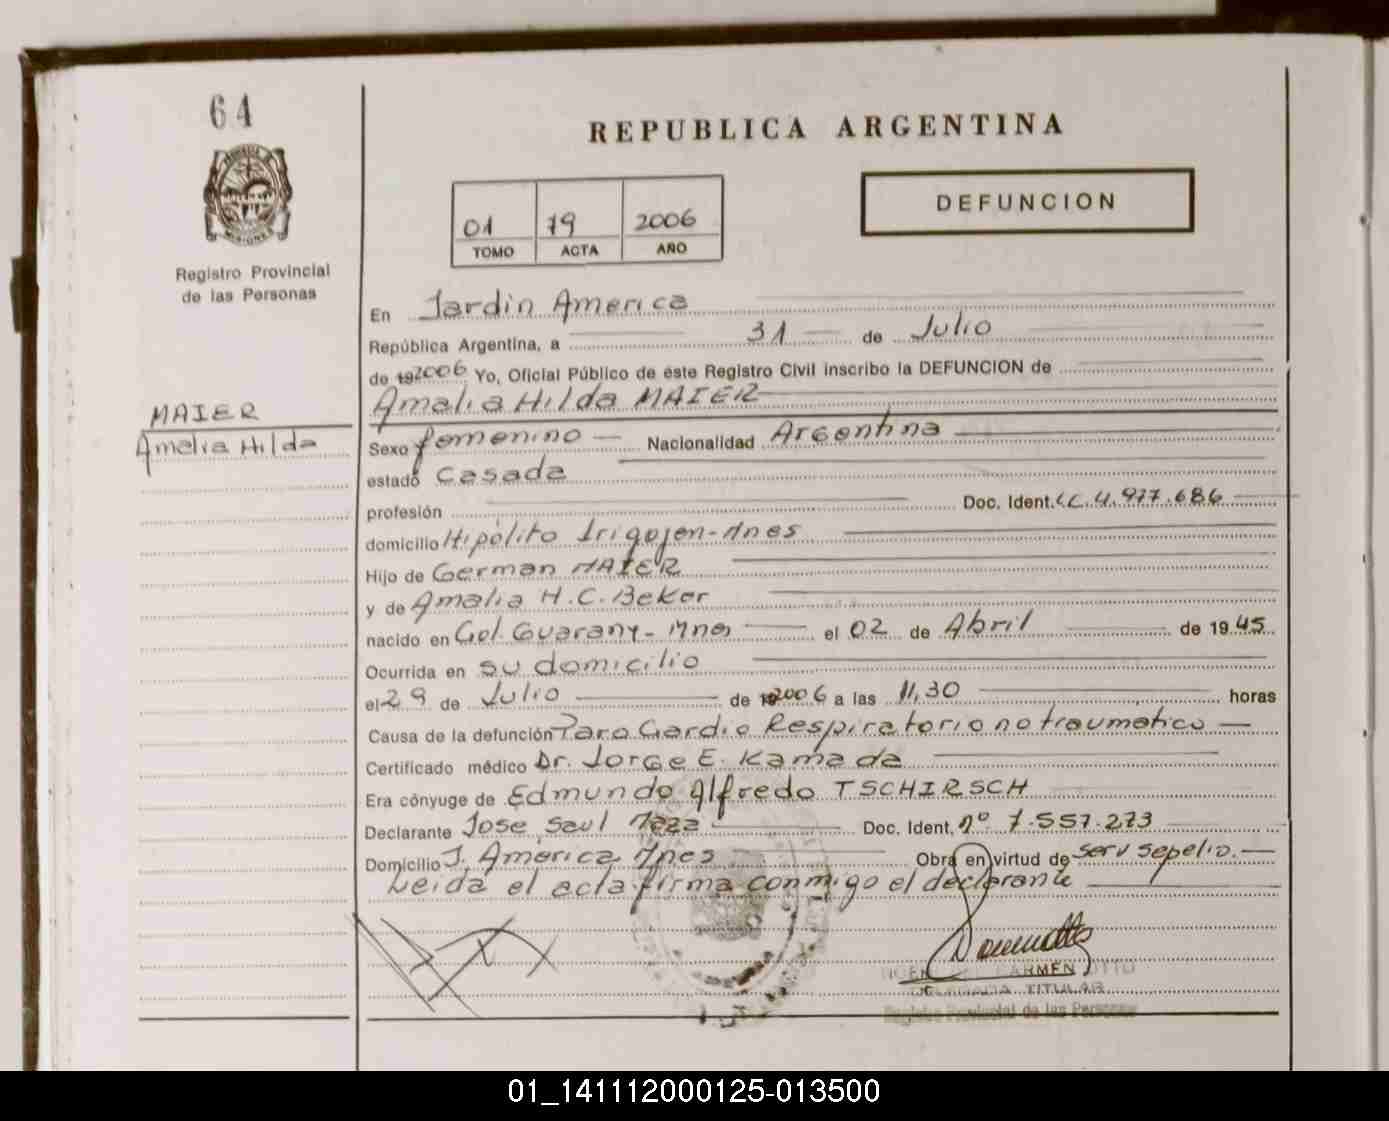 64
REPUBLICA ARGENTINA
DEFUNCION
01 79 2006
TOMO ACTA AÑO
Registro Provincial
de las Personas
MAIER
Amalia Hilda
En Jardin America
República Argentina, a 31 de Julio
de 192006 Yo, Oficial Público de este Registro Civil inscribo la DEFUNCION de
Amalia Hilda MAIER
Sexo femenino Nacionalidad Argentina
estado Casada
profesión Doc. Ident. LC. 4.977.686
domicilio Hipólito Irigojen-Mnes
Hijo de German MAIER
y de Amalia H.C. Beker
nacido en Col. Guarany-Mnes el 02 de Abril de 1945
Ocurrida en su domicilio
el 29 de Julio de 192006 a las 11,30 horas
Causa de la defunción Paro Cardio Respiratorio no traumatico
Certificado médico Dr. Jorge E. Kamada
Era cónyuge de Edmundo Alfredo TSCHIRSCH
Declarante Jose Saul Meza Doc. Ident. nº 7.557.273
Domicilio J. América Mnes Obra en virtud de serv sepelio.
Leida el acta firma conmigo el declarante
CARMEN
TITULAR
Registro Provincial de las Personas
01_141112000125-013500